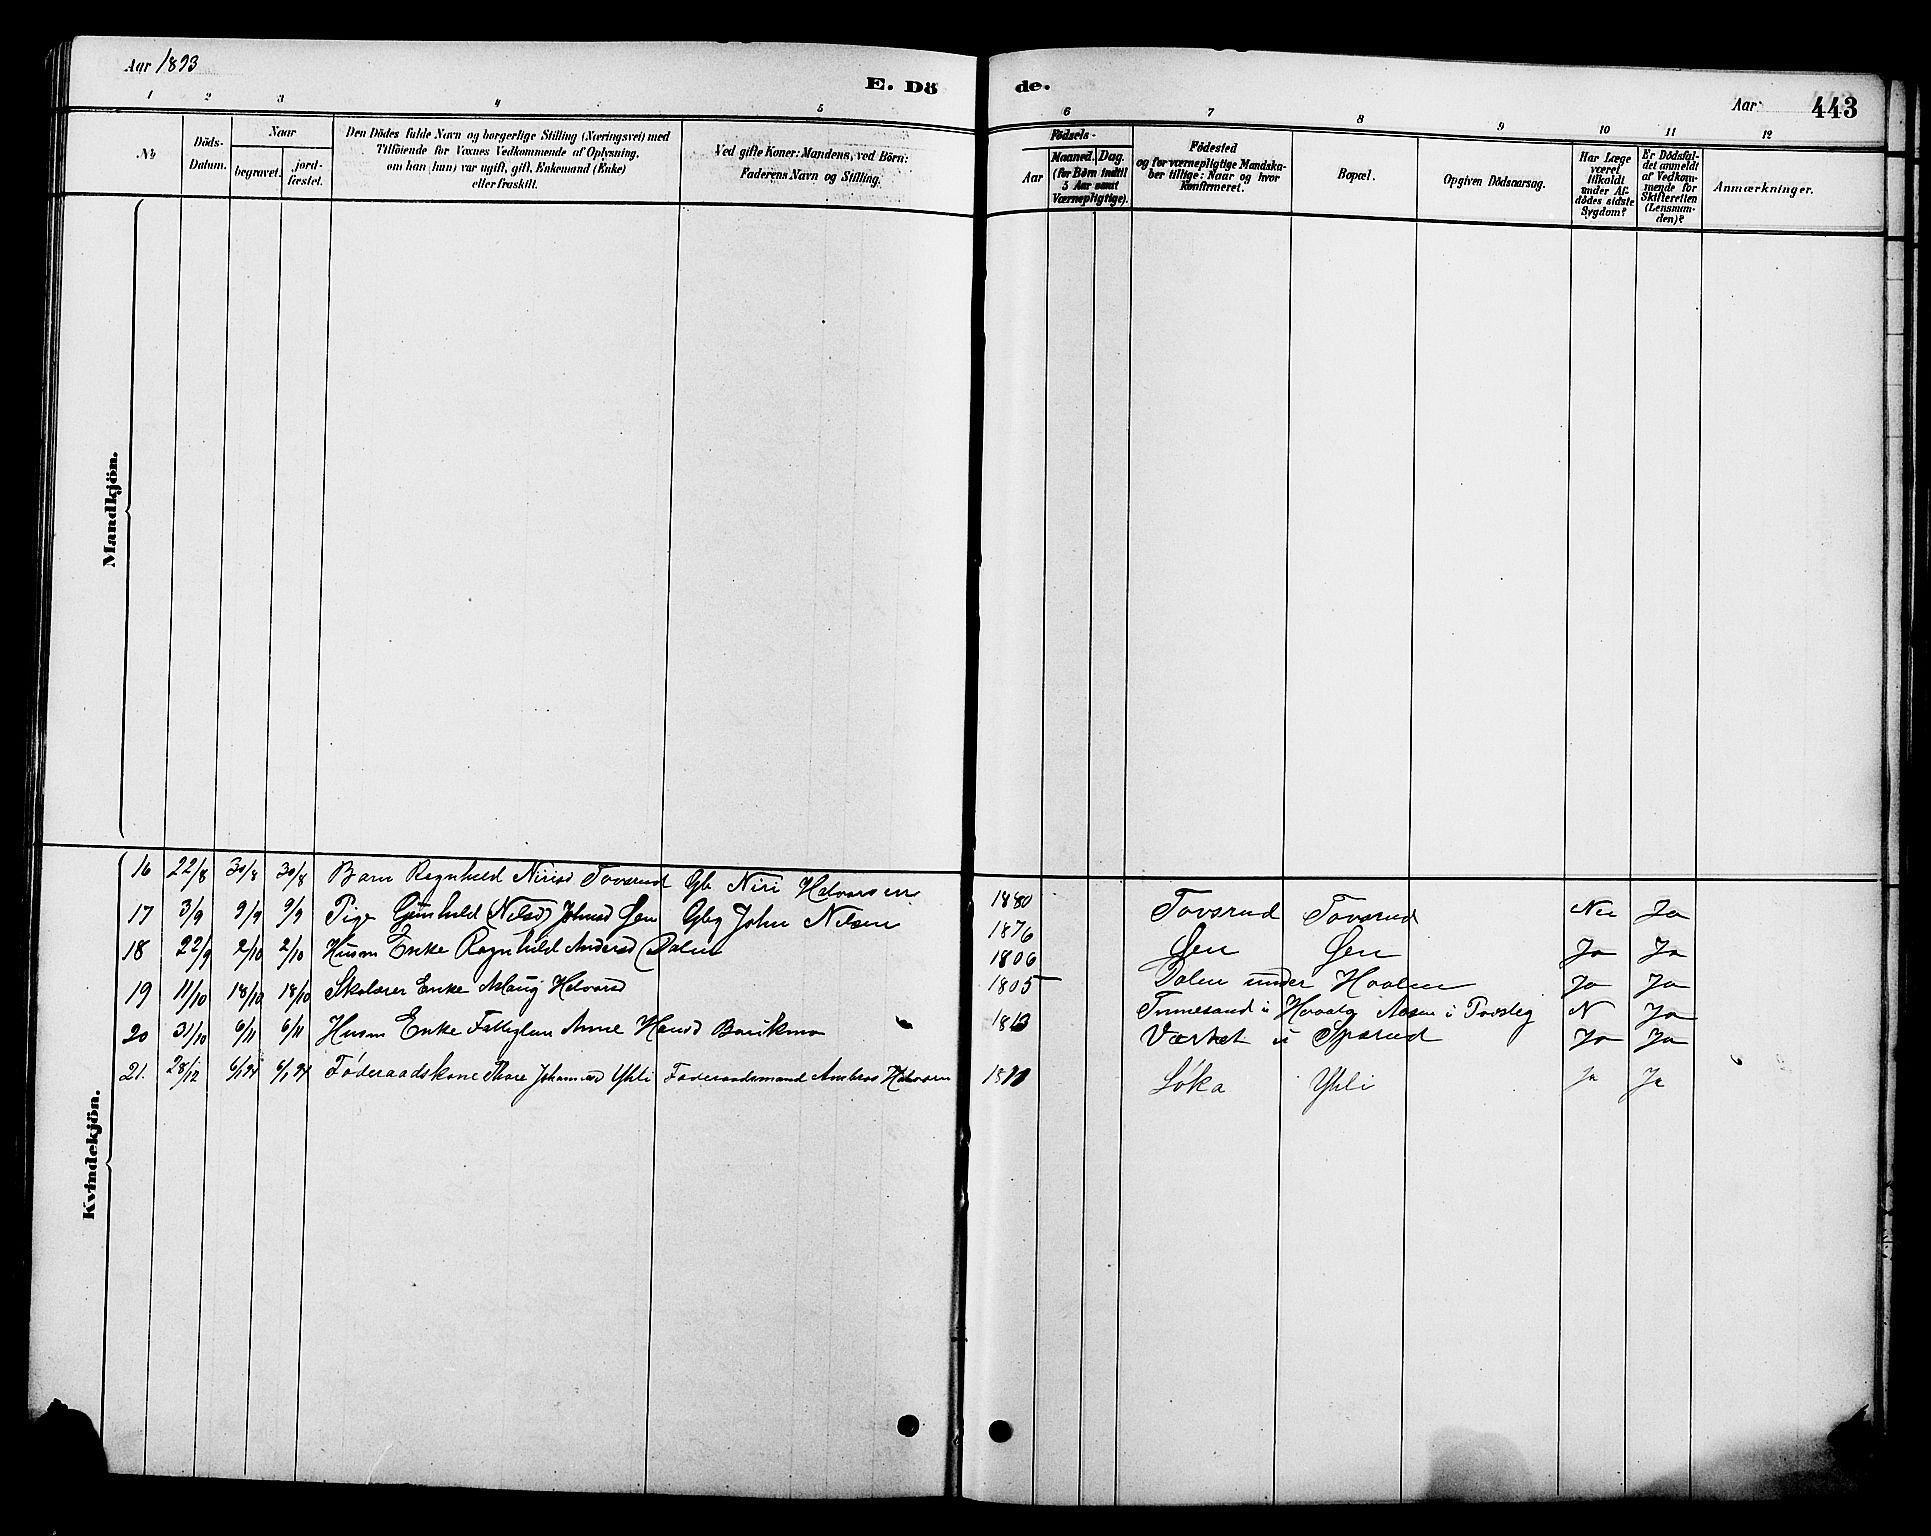 Aar 1893
E. Dö
de.
Aar
443
1 2 3 4 5 6 7 8 9 10 11 12
No
Döds-
Datum.
Naar
begravet.
jord-
fæstet.
Den Dödes fulde Navn og borgerlige Stilling (Næringsvei) med
Tilföiende for Voxnes Vedkommende af Oplysning,
om han (hun) var ugift, gift, Enkemand (Enke)
eller fraskilt.
Ved gifte Koner: Mandens, ved Börn:
Faderens Navn og Stilling.
Födsels-
Aar
Maaned. Dag.
(for Børn indtil
5 Aar samt
Værnepligtige).
Födested
og for værnepligtige Mandska-
ber tillige: Naar og hvor
Konfirmeret.
Bopæl.
Opgiven Dödsaarsag.
Har Læge
været
tilkaldt
under Af-
dödes sidste
Sygdom?
Er Dödsfal-
det anmeldt
af Vedkom-
mende for
Skifteretten
(Lensman-
den)?
Anmærkninger.
Mandkjön.
Kvindekjön.
16 22/8 30/8 30/8 Barn Ragnhild Nirisd Tovsrud Gb Niri Halvorsen 1880 Tovsrud Tovsrud Nei Ja
17 3/9 9/9 9/9 Pige Gunhild (Nilsd) Johnsd Øen Gbg John Nilsen 1876 Øen Øen Ja Ja
18 22/9 2/10 2/10 Husm Enke Ragnhild Andersd Dalen 1806 Dalen under Hoolen Ja Ja
19 11/10 18/10 18/10 Skolærer Enke Aslaug Halvorsd 1805 i Aasen i N Ja
20 31/10 6/11 6/11 Husm Enke Fattiglem Anne Hansd 1813 Værket i Ja Ja
21. 28/12 6/1 94 6/1 94 Føderaadskone Thore Johannesd Yhli Føderaadsmand Ambros Halvorsen Løka Yhli Ja Ja